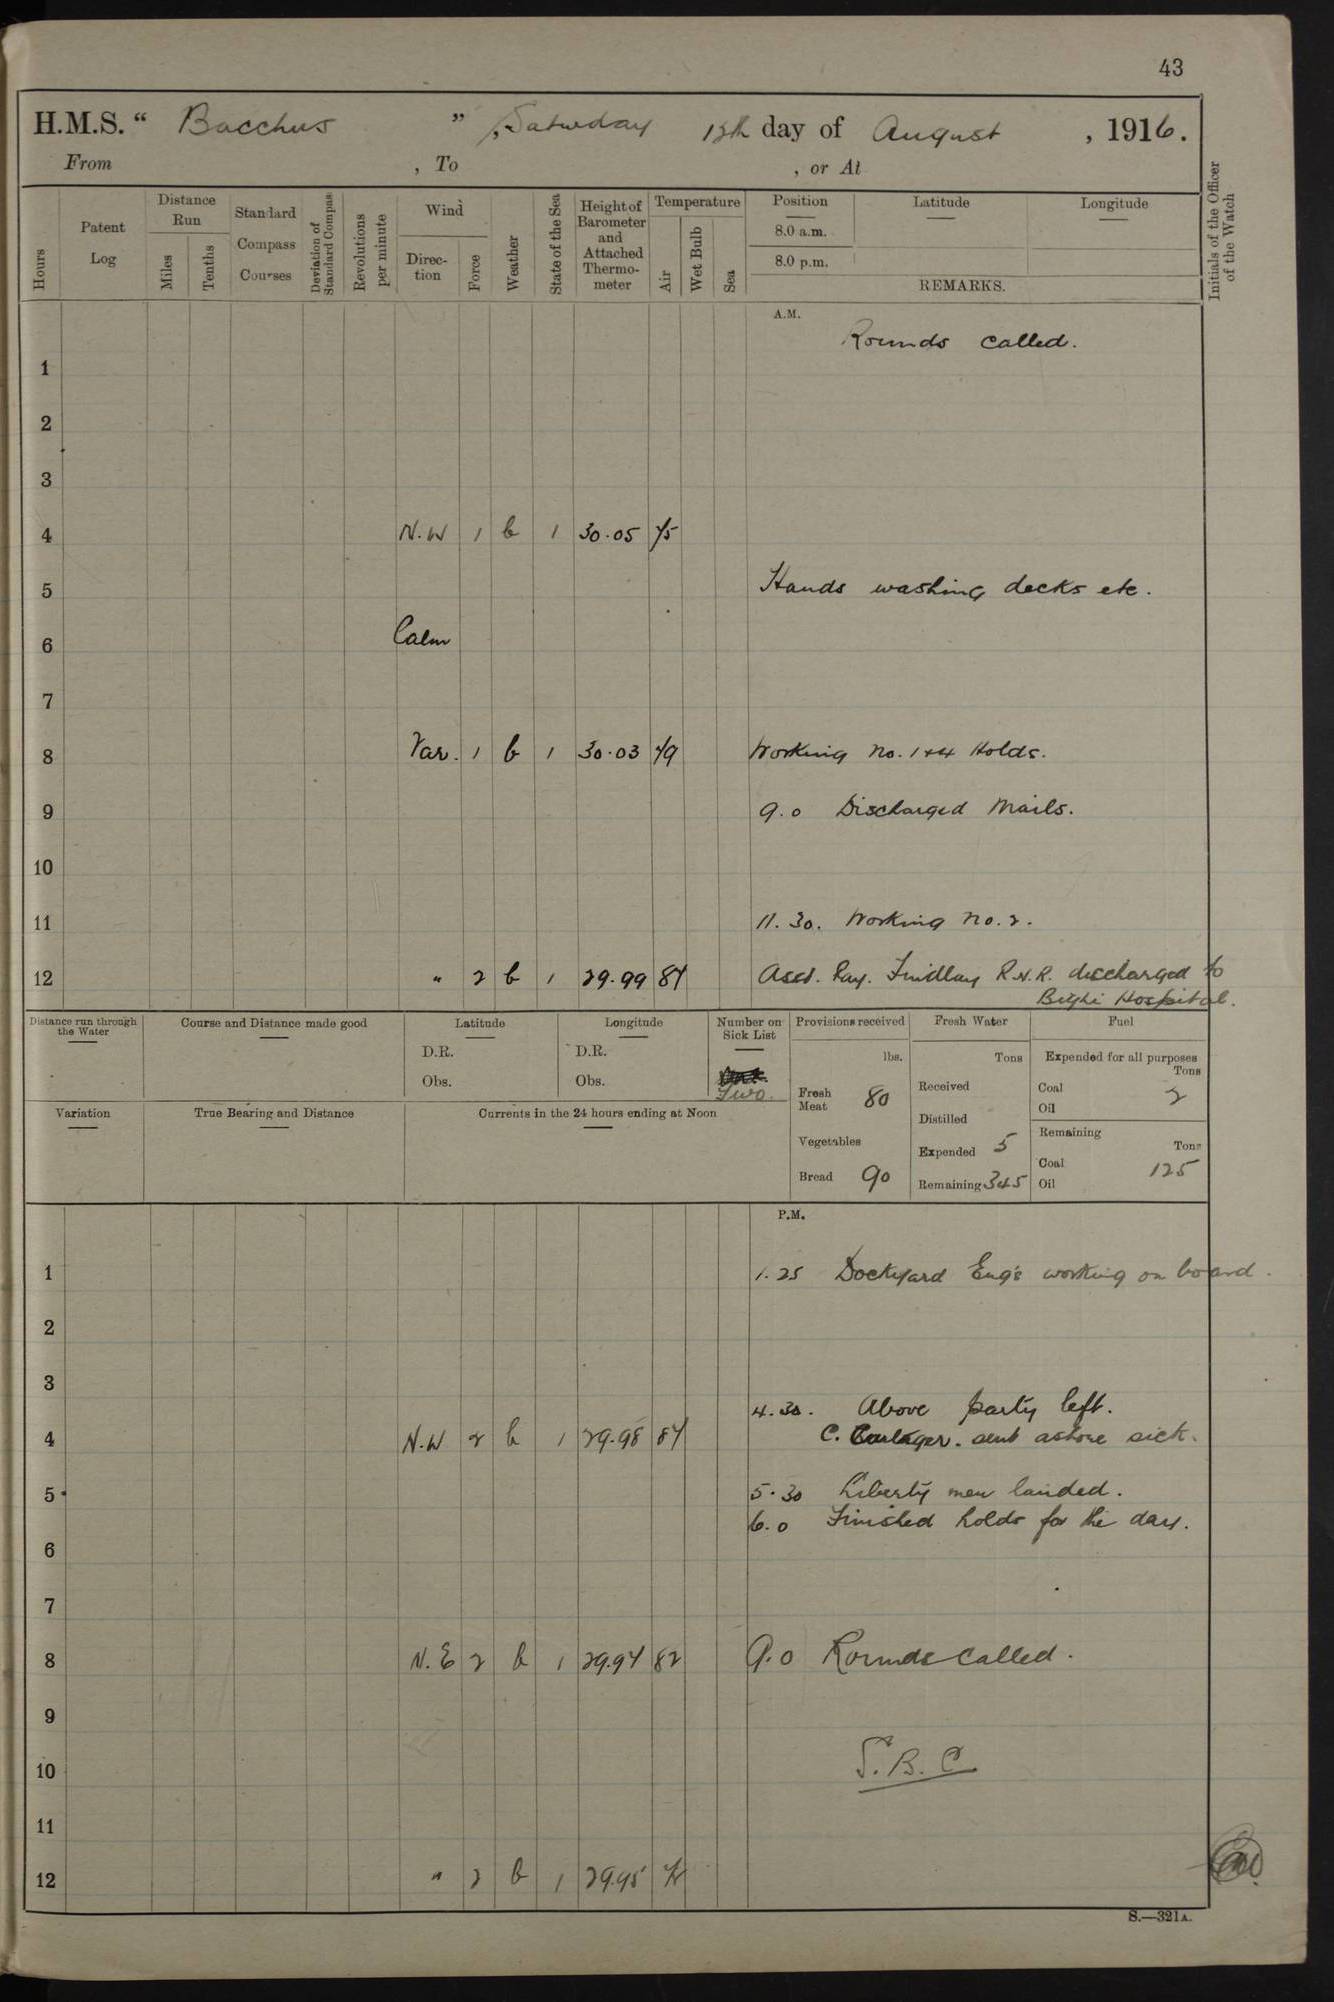 43
H.M.S. " Bacchus ", Saturday 12th day of August, 1916.
From , To , or At
Hours
Patent Log
Distance Run
Miles
Tenths
Standard Compass Courses
Deviation of Standard Compass
Revolutions per minute
Wind
Direction
Force
Weather
State of the Sea
Height of Barometer and Attached Thermometer
Temperature
Air
Wet Bulb
Sea
Position
8.0 a.m.
8.0 p.m.
Latitude
Longitude
REMARKS.
Initials of the Officer of the Watch
A.M.
Rounds called.
1
2
3
4 N.W 1 b 1 30.05 75
5 Hands washing decks etc.
6 Calm
7
8 Var. 1 b 1 30.03 79 Working No. 1 & 4 Holds.
9 9.0 Discharged Mails.
10
11 11.30. Working No. 2.
12 " 2 b 1 29.99 84 Asst. Pay. Findlay R.N.R. discharged to
Bighi Hospital.
Distance run through the Water
Course and Distance made good
Latitude
D.R.
Obs.
Longitude
D.R.
Obs.
Number on Sick List
Two.
Provisions received
lbs.
Fresh Meat 80
Vegetables
Bread 90
Fresh Water
Tons
Received
Distilled
Expended 5
Remaining 345
Fuel
Expended for all purposes
Tons
Coal 2
Oil
Remaining
Tons
Coal 125
Oil
Variation
True Bearing and Distance
Currents in the 24 hours ending at Noon
P.M.
1 1.25 Dockyard Eng's working on board.
2
3
4.30. Above party left.
4 N.W 2 b 1 29.98 84 C. sent ashore sick.
5 5.30 Liberty men landed.
6.0 Finished holds for the day.
6
7
8 N.E 2 b 1 29.94 82 9.0 Rounds called.
9
10 S.B.C
11
12 " 2 b 1 29.95
S.—321A.